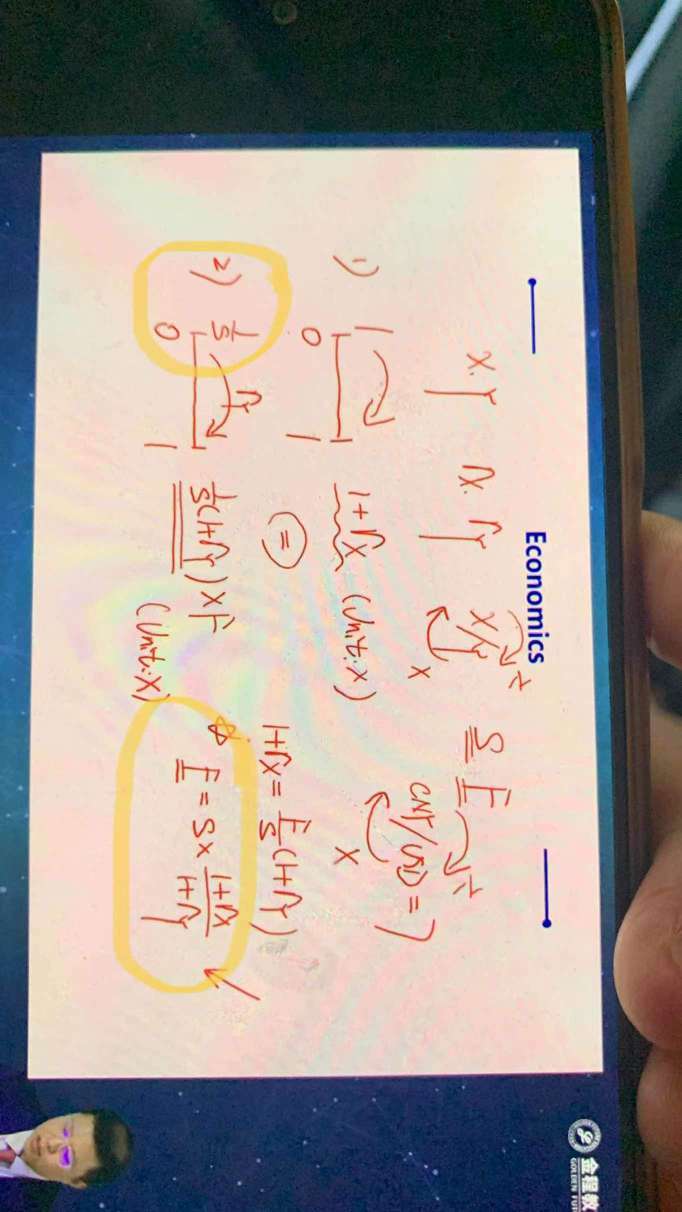 Economics
X.Y rx. ry X/Y S F
× ÷ CNY/USD = 7
× ÷
1) 1 1+rx (Unit: X)
0 1
= 1+rx = F/S (1+ry)
2) 1/S ry 1/S (1+ry) × F ☆ F = S × (1+rx)/(1+ry)
0 1 (Unit: X)
金程教
GOLDEN FUT